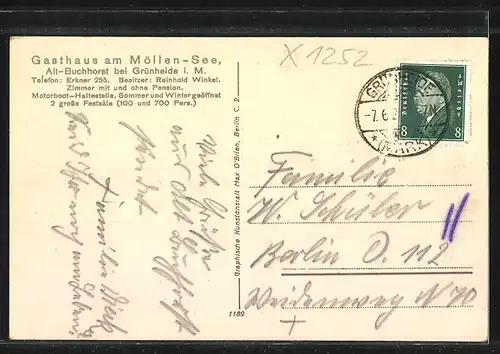 Gasthaus am Möllen-See,
Alt-Buchhorst bei Grünheide i. M.
Telefon: Erkner 255. Besitzer: Reinhold Winkel.
Zimmer mit und ohne Pension.
Motorboot-Haltestelle. Sommer und Winter geöffnet
2 große Festsäle (100 und 700 Pers.)
X 1252
8 8
-7.6.
(MARK)
Graphische Kunstanstalt Max O'Brien, Berlin C. 2.
1189
Viele Grüße
aus Alt Buchhorst
sendet
Familie
Familie
W. Schüler
Berlin O. 112
Weidenweg N 70